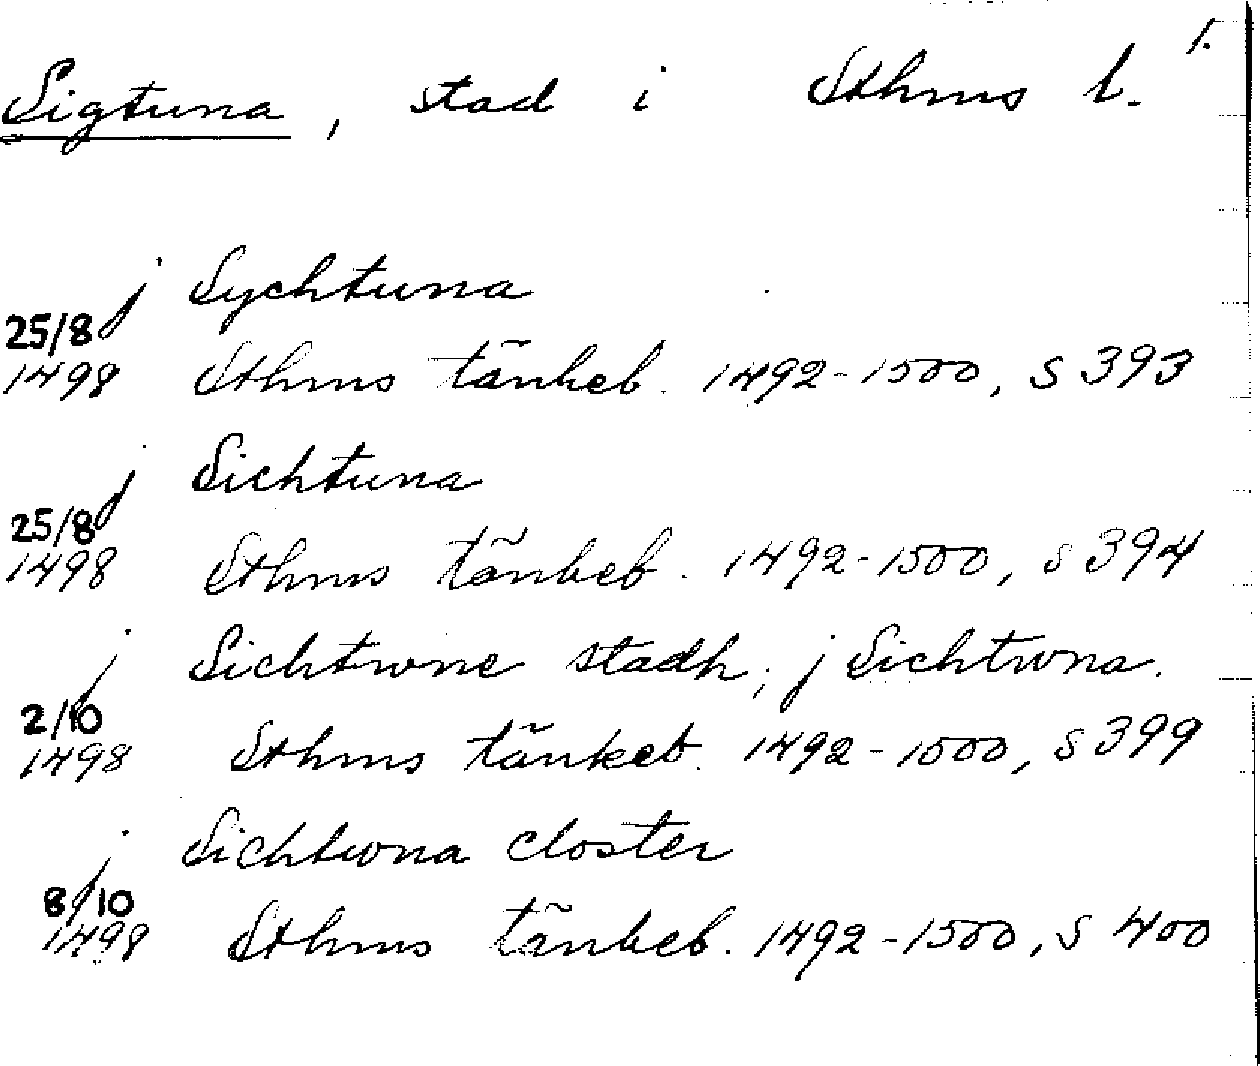 1.
Sigtuna, stad i Sthms l.
j Sychtuna
25/8
1498 Sthms tänkeb. 1492-1500, s 393
j Sichtuna
25/8
1498 Sthms tänkeb. 1492-1500, s 394
j Sichtwne stadh, j Sichtwna.
2/10
1498 Sthms tänkeb. 1492-1500, s 399
j Sichtwna closter
8/10
1498 Sthms tänkeb. 1492-1500, s 400